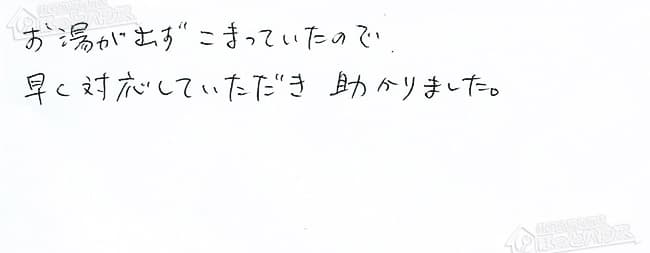 お湯が出ず こまっていたので
早く対応していただき 助かりました。